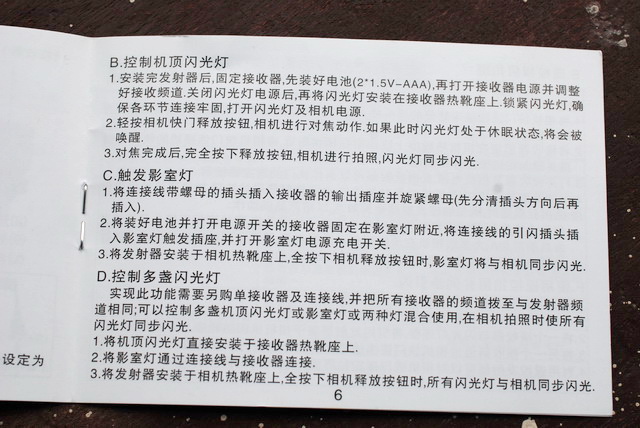 B.控制机顶闪光灯
1.安装完发射器后,固定接收器,先装好电池(2*1.5V-AAA),再打开接收器电源并调整
好接收频道.关闭闪光灯电源后,再将闪光灯安装在接收器热靴座上.锁紧闪光灯,确
保各环节连接牢固,打开闪光灯及相机电源.
2.轻按相机快门释放按钮,相机进行对焦动作.如果此时闪光灯处于休眠状态,将会被
唤醒.
3.对焦完成后,完全按下释放按钮,相机进行拍照,闪光灯同步闪光.
C.触发影室灯
1.将连接线带螺母的插头插入接收器的输出插座并旋紧螺母(先分清插头方向后再
插入).
2.将装好电池并打开电源开关的接收器固定在影室灯附近,将连接线的引闪插头插
入影室灯触发插座,并打开影室灯电源充电开关.
3.将发射器安装于相机热靴座上,全按下相机释放按钮时,影室灯将与相机同步闪光.
D.控制多盏闪光灯
实现此功能需要另购单接收器及连接线,并把所有接收器的频道拨至与发射器频
道相同;可以控制多盏机顶闪光灯或影室灯或两种灯混合使用,在相机拍照时使所有
闪光灯同步闪光.
1.将机顶闪光灯直接安装于接收器热靴座上.
2.将影室灯通过连接线与接收器连接.
3.将发射器安装于相机热靴座上,全按下相机释放按钮时,所有闪光灯与相机同步闪光.
6
设定为